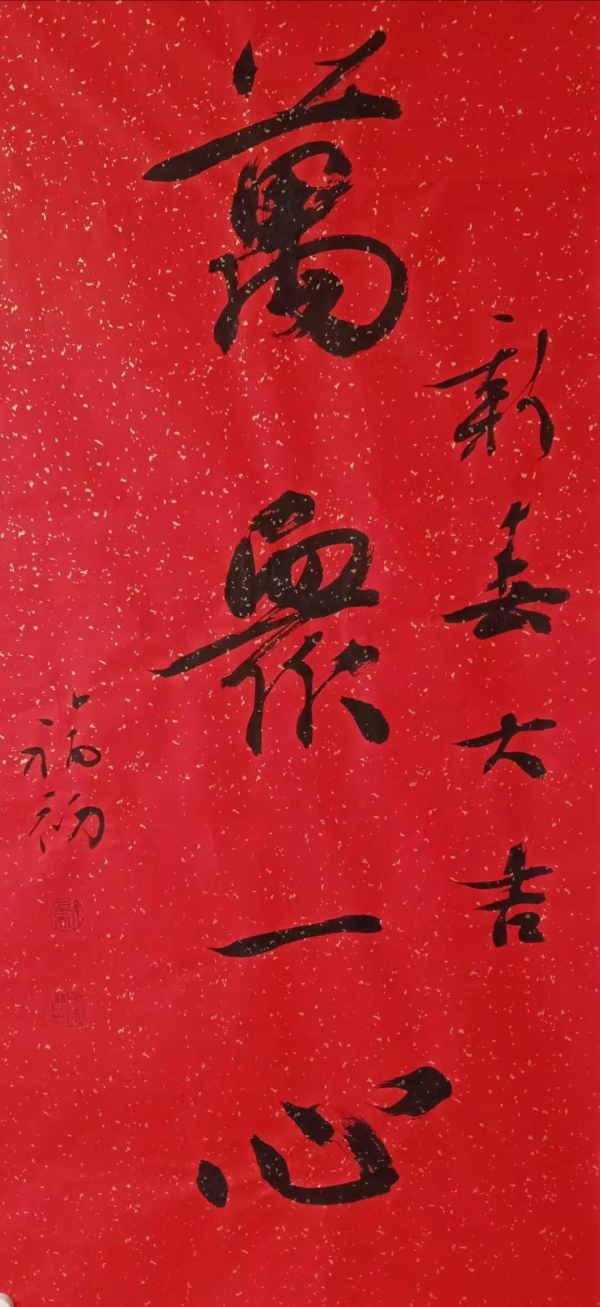 新春大吉
萬眾一心
福初